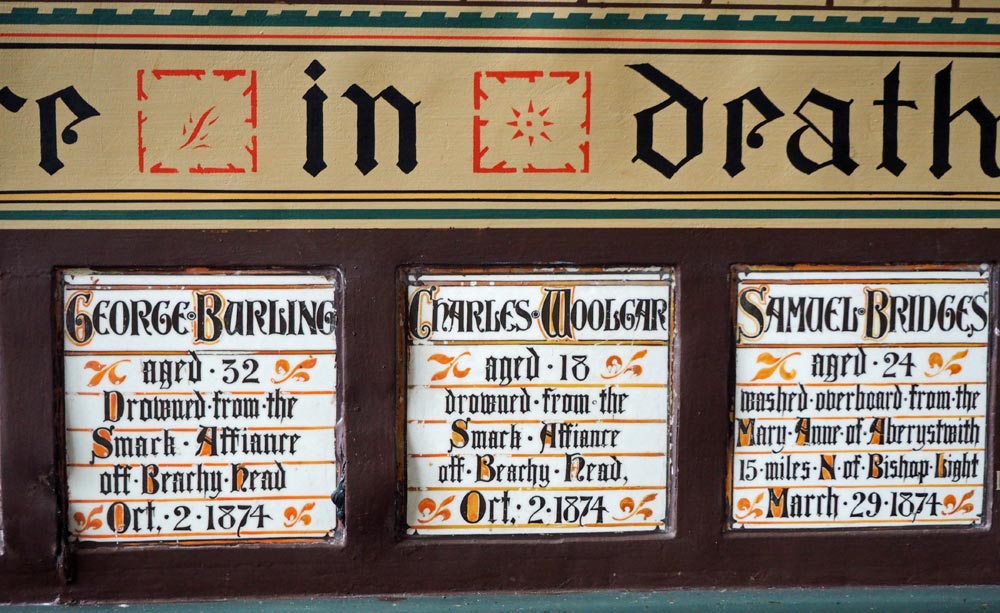 re in death
GEORGE·BURLING
aged·32
Drowned·from·the
Smack·Affiance
off·Beachy·Head
Oct,·2·1874
CHARLES·WOOLGAR
aged·18
drowned·from·the
Smack·Affiance
off·Beachy·Head,
Oct,·2·1874
SAMUEL·BRIDGES
aged·24
washed·overboard·from·the
Mary·Anne·of·Aberystwith
15·miles·N·of·Bishop·Light
March·29·1874